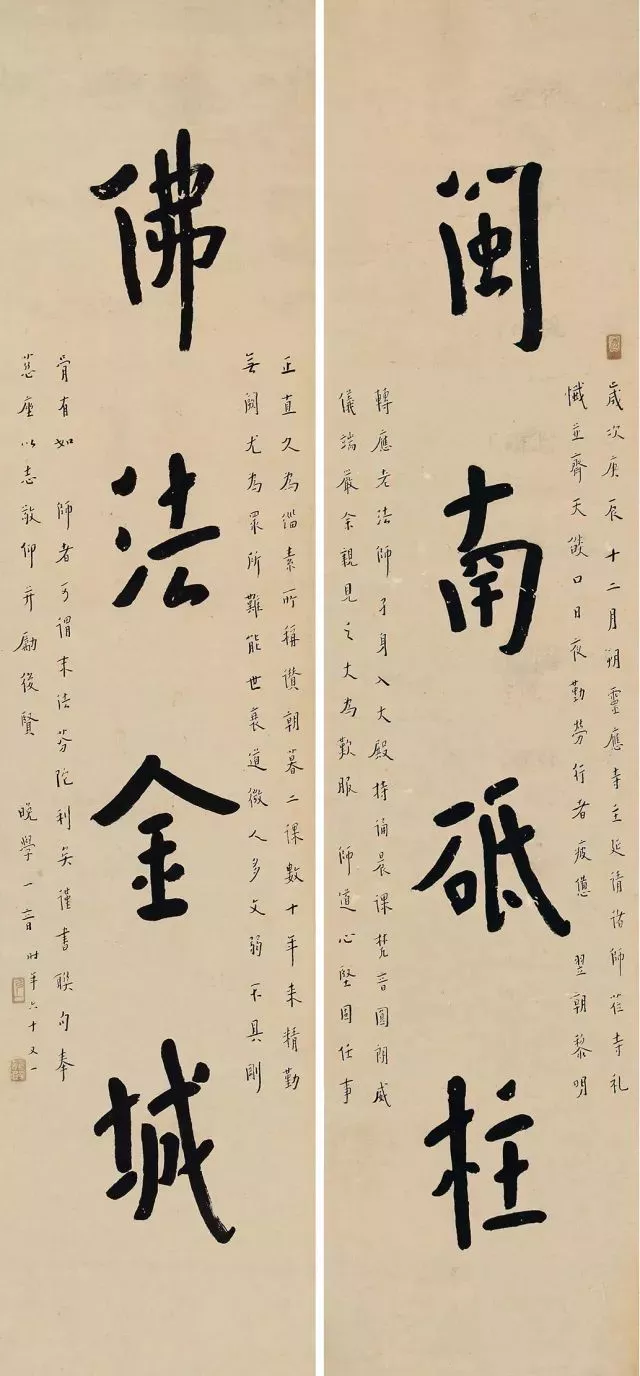 閩南砥柱
歲次庚辰十二月朔靈應寺主延請諸師莅寺礼
懺並齊天燄口日夜勤勞行者疲憊 翌朝黎明
轉應老法師孑身入大殿持誦晨課梵音圓朗威
儀端嚴余親見之大為歎服 師道心堅固任事
佛法金城
正直久為緇素所稱讚朝暮二課數十年来精勤
无闕尤為眾所難能世衰道微人多文弱不具剛
骨有如 師者可謂末法芬陀利矣謹書聯句奉
慈座以志敬仰并勵後賢 晚學一音時年六十又一